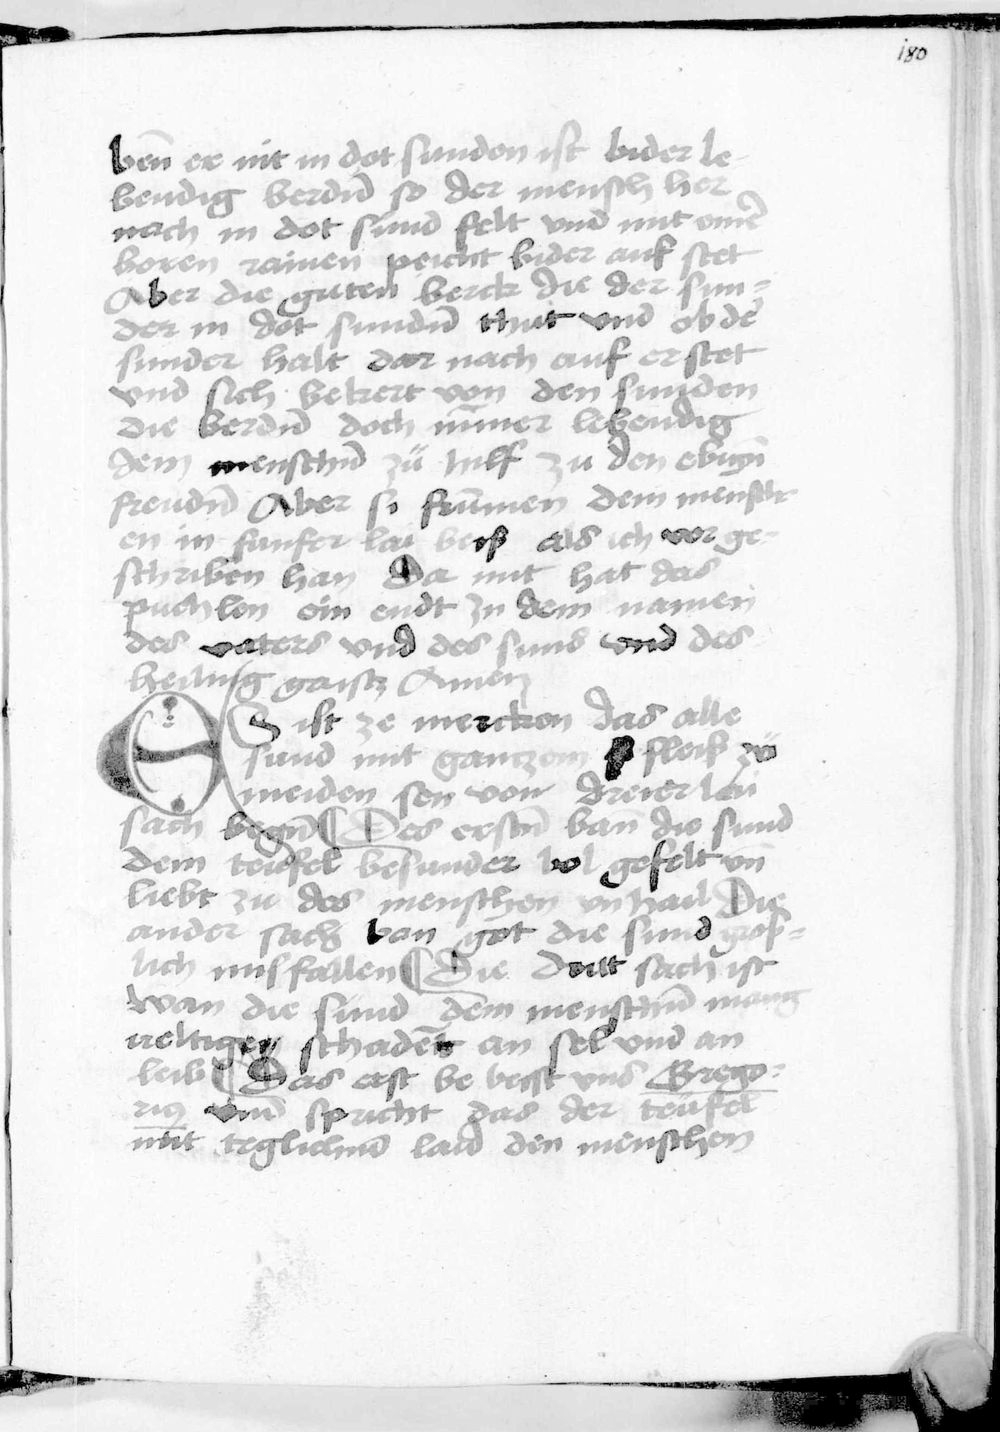 180
ben̄ er nit in dot sunden ist bider le-
bendig berdn̄ so der mensch her
nach in dot sund felt vnd mit eine͂
boren rainen peicht bider auf stet
Aber die guten berck die der sun=
der in dot sundn̄ thut vnd ob de͂
sunder halt dar nach auf erstet
vnd sich bekert von den sunden
die berdn̄ doch nim̄er lebendig
dem menschn̄ zü hilf zu den ebign̄
freudn̄ Aber si frum̄en dem mensch
en in funfer lai beiß als ich vor ge-
schriben han Da mit hat das
puchlen ein endt In dem namen
des vaters vnd des suns vnd des
heiling gaistz Amen
ES ist ze mercken das alle
sund mit ganczem fleiß zü
meiden sen von dreier leii
sach begn̄ ¶ Des erstn̄ ban die sund
dem teüfel besunder bol gefelt vn̄
liebt zu des menschen vnhail Die
ander sach ban got die sund groß=
lich misfallen ¶ Die dritt sach ist
wan die sund dem menschn̄ mang
ueltigen schaden̄ an sel vnd an
leib ¶ Das erst be besst vns Grego=
riꝰ vnd spricht das der teüfel
mit teglichm̄ laid den menschen